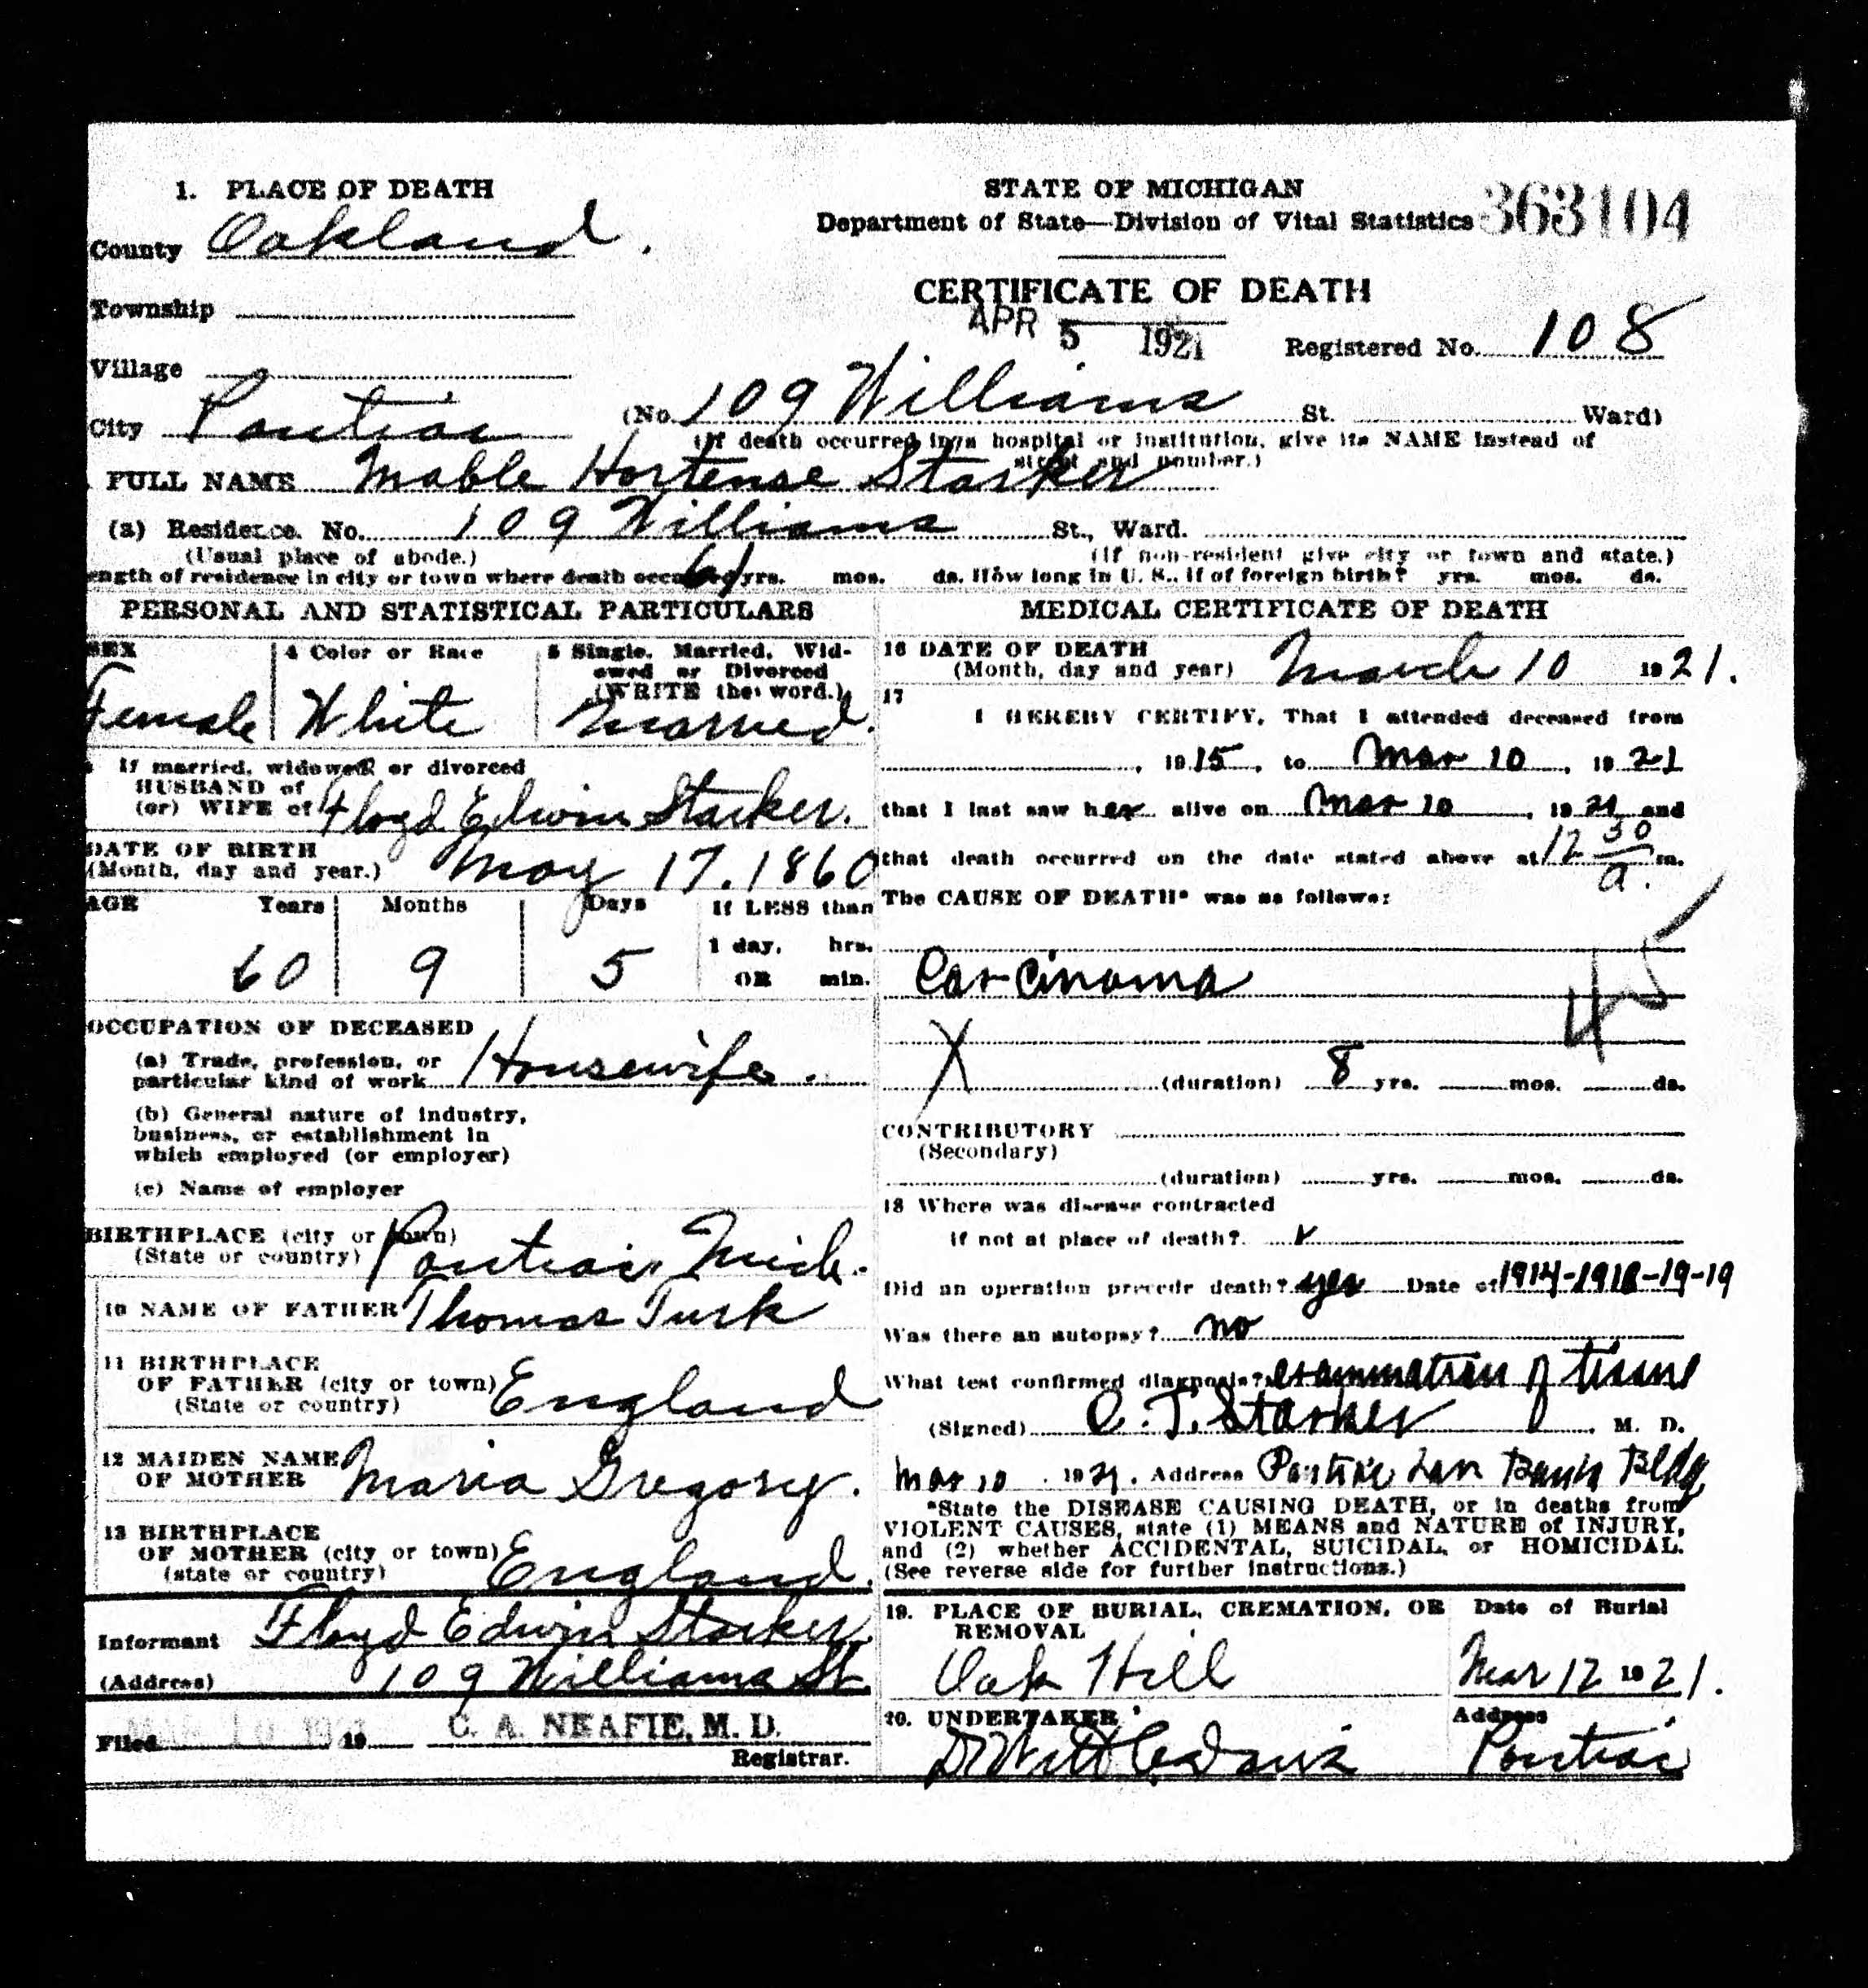 1. PLACE OF DEATH
STATE OF MICHIGAN
Department of State—Division of Vital Statistics 363104
County Oakland.
CERTIFICATE OF DEATH
Township
APR 5 1921
Registered No. 108
Village
City Pontiac (No. 109 Williams St. Ward)
(If death occurred in a hospital or institution, give its NAME instead of
street and number.)
FULL NAME Mable Hortense Starker
(a) Residence. No. 109 Williams St., Ward.
(Usual place of abode.) (If non-resident give city or town and state.)
ength of residence in city or town where death occurred 61 yrs. mos. ds. How long in U. S., if of foreign birth? yrs. mos. ds.
PERSONAL AND STATISTICAL PARTICULARS
SEX
4 Color or Race
5 Single, Married, Wid-
owed or Divorced
(WRITE the word.)
Female White Married.
If married, widowed or divorced
HUSBAND of
(or) WIFE of Floyd Edwin Starker.
DATE OF BIRTH
(Month, day and year.) May 17. 1860
AGE Years Months Days If LESS than
1 day, hrs.
60 9 5 OR min.
OCCUPATION OF DECEASED
(a) Trade, profession, or
particular kind of work Housewife.
(b) General nature of industry,
business, or establishment in
which employed (or employer)
(c) Name of employer
BIRTHPLACE (city or town)
(State or country) Pontiac, Mich.
10 NAME OF FATHER Thomas Turk
11 BIRTHPLACE
OF FATHER (city or town)
(State or country) England
12 MAIDEN NAME
OF MOTHER Maria Gregory.
13 BIRTHPLACE
OF MOTHER (city or town)
(state or country) England.
Informant Floyd Edwin Starker.
(Address) 109 Williams St.
Filed MAR 10 1921 19 C. A. NEAFIE, M. D.
Registrar.
MEDICAL CERTIFICATE OF DEATH
16 DATE OF DEATH
(Month, day and year) March 10 1921.
17
I HEREBY CERTIFY, That I attended deceased from
, 1915, to Mar 10, 1921
that I last saw her alive on Mar 10, 1921 and
that death occurred on the date stated above at 12 30 a. m.
The CAUSE OF DEATH* was as follows:
Carcinoma
45
X (duration) 8 yrs. mos. ds.
CONTRIBUTORY
(Secondary)
(duration) yrs. mos. ds.
18 Where was disease contracted
if not at place of death?
Did an operation precede death? yes Date of 1914-1918-19-19
Was there an autopsy? no
What test confirmed diagnosis? examination of tissue
(Signed) C. T. Starker, M. D.
Mar 10, 1921. Address Pontiac Bank Bldg
*State the DISEASE CAUSING DEATH, or in deaths from
VIOLENT CAUSES, state (1) MEANS and NATURE of INJURY,
and (2) whether ACCIDENTAL, SUICIDAL, or HOMICIDAL.
(See reverse side for further instructions.)
19. PLACE OF BURIAL, CREMATION, OR
REMOVAL
Date of Burial
Oak Hill Mar 12 1921.
20. UNDERTAKER Address
Pontiac